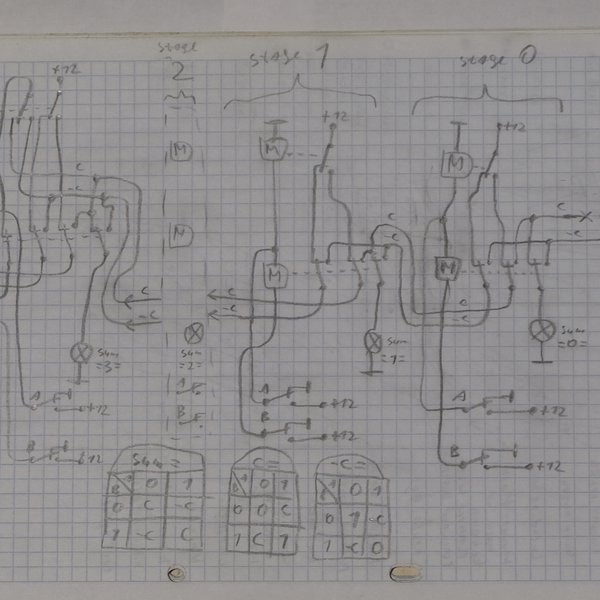 stage
2
stage 1
stage 0
+12
+12
+12
M
M
M
M
M
M
c
-c
c
-c
c
-c
c
-c
c
-c
0
-c
Sum
=3=
Sum
=2=
Sum
=1=
Sum
=0=
A
+12
B
+12
A
B
A
+12
B
+12
A
+12
B
+12
Sum =
0 1
0 C -C
1 -C C
C =
0 1
0 0 C
1 C 1
-C =
0 1
0 1 -C
1 -C 0